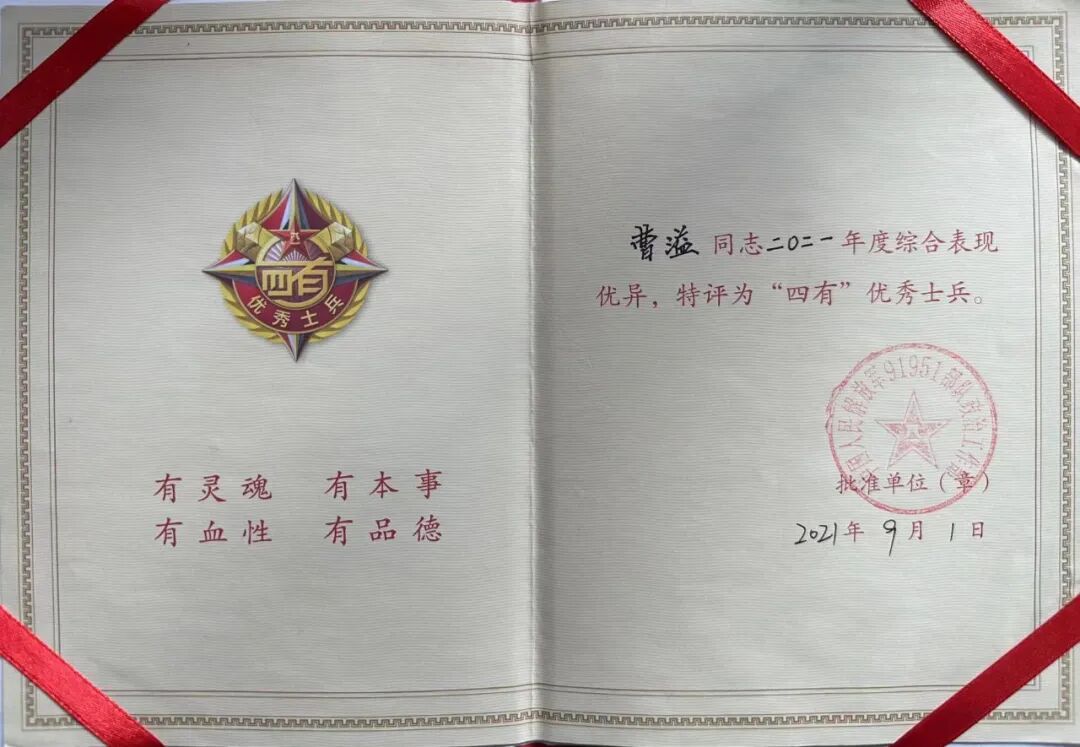 四有
优秀士兵
有灵魂 有本事
有血性 有品德
曹溢同志二〇二一年度综合表现
优异，特评为“四有”优秀士兵。
国人民解放军91951部队政治工作部
批准单位（章）
2021年9月1日